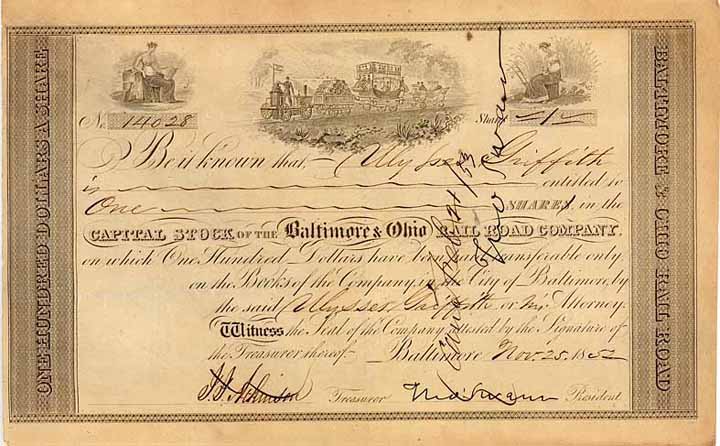 ONE HUNDRED DOLLARS A SHARE
No. 14028
Share 1
Be it known that, Ulysses Griffith
is entitled to
One SHARES in the
CAPITAL STOCK OF THE Baltimore & Ohio RAIL ROAD COMPANY,
on which One Hundred Dollars have been paid transferable only
on the Books of the Company in the City of Baltimore, by
the said Ulysses Griffith or his Attorney.
Witness the Seal of the Company attested by the Signature of
the Treasurer thereof. Baltimore Nov. 25. 1852
J.J. Atkinson Treasurer President
BALTIMORE & OHIO RAIL ROAD